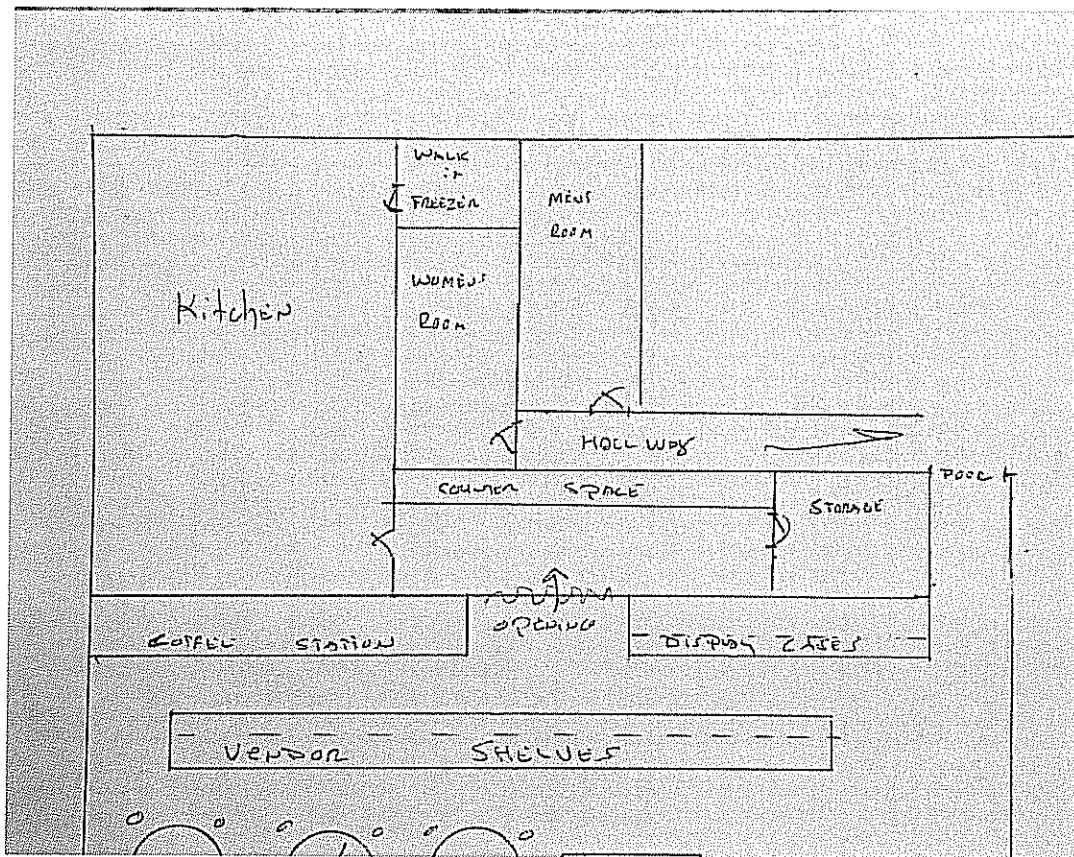 WALK
in
FREEZER
MENS
ROOM
WOMENS
ROOM
Kitchen
HALL WAY
DOOR
COUNTER SPACE
STORAGE
OPENING
COFFEE STATION
DISPLAY CASES
VENDOR SHELVES